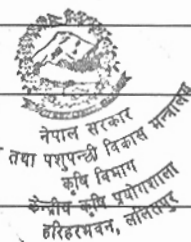 नेपाल सरकार
तथा पशुपन्छी विकास मन्त्रालय
कृषि विभाग
केन्द्रीय कृषि प्रयोगशाला
हरिहरभवन, ललितपुर